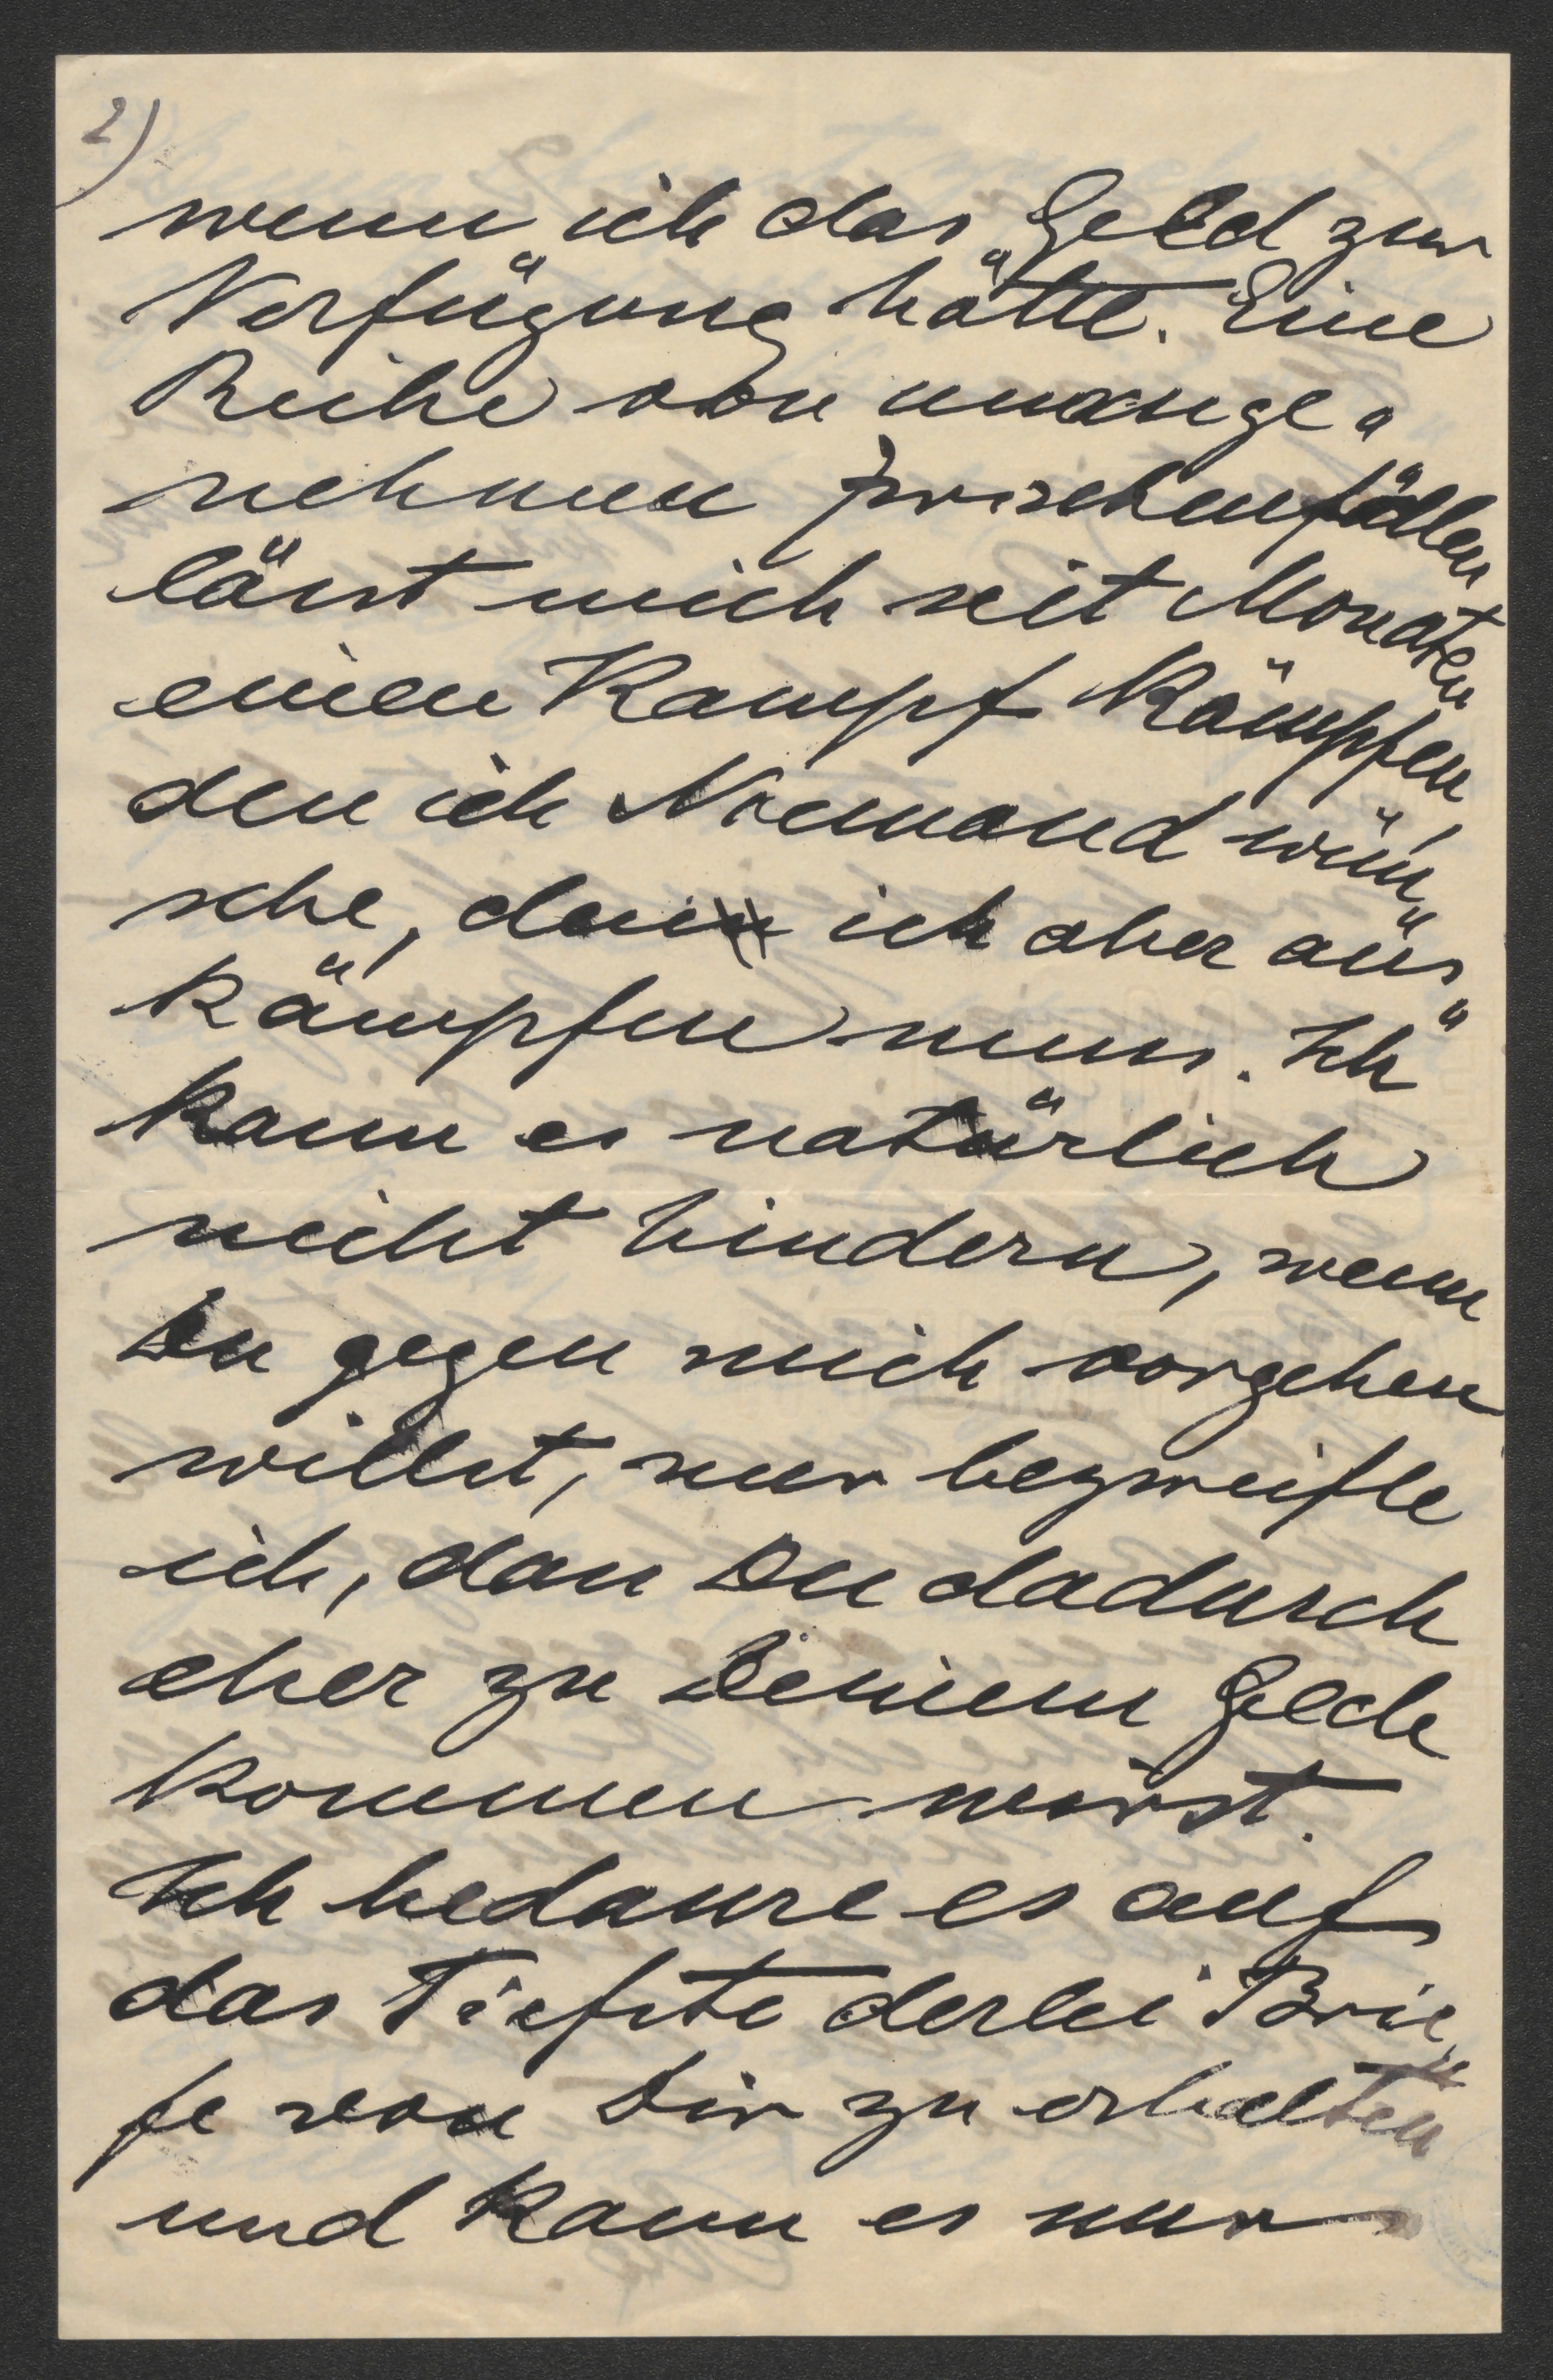 2)
wenn ich das Geld zur
Verfügung hätte. Eine
Reihe von unange"
nehmen Zwischenfällen
lässt mich seit Monaten
einen Kampf kämpfen
den ich Niemand wün"
sche, den ich aber aus"
kämpfen muss. Ich
kann es natürlich
nicht hindern, wenn
Du gegen mich vorgehen
willst, nur bezweifle
ich, dass Du dadurch
eher zu Deinem Gelde
kommen wirst.
Ich bedaure es auf
das Tiefste derlei Brie"
fe von Dir zu erhalten
und kann es nur